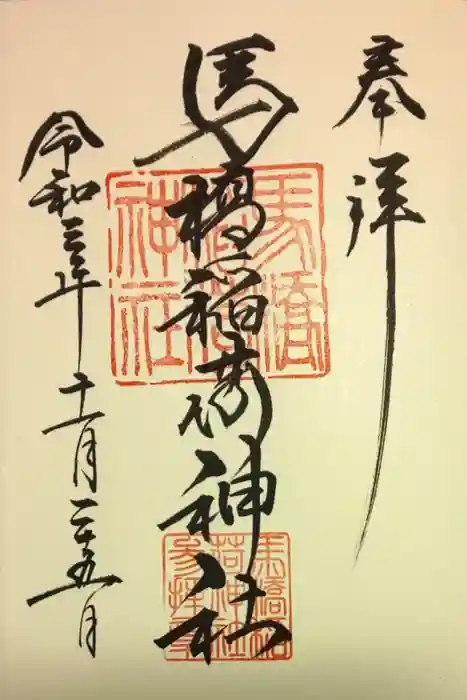 奉拝
馬橋稲荷神社
令和三年十一月二十五日
馬橋
稲荷
神社
馬橋稲
荷神社
参拝章